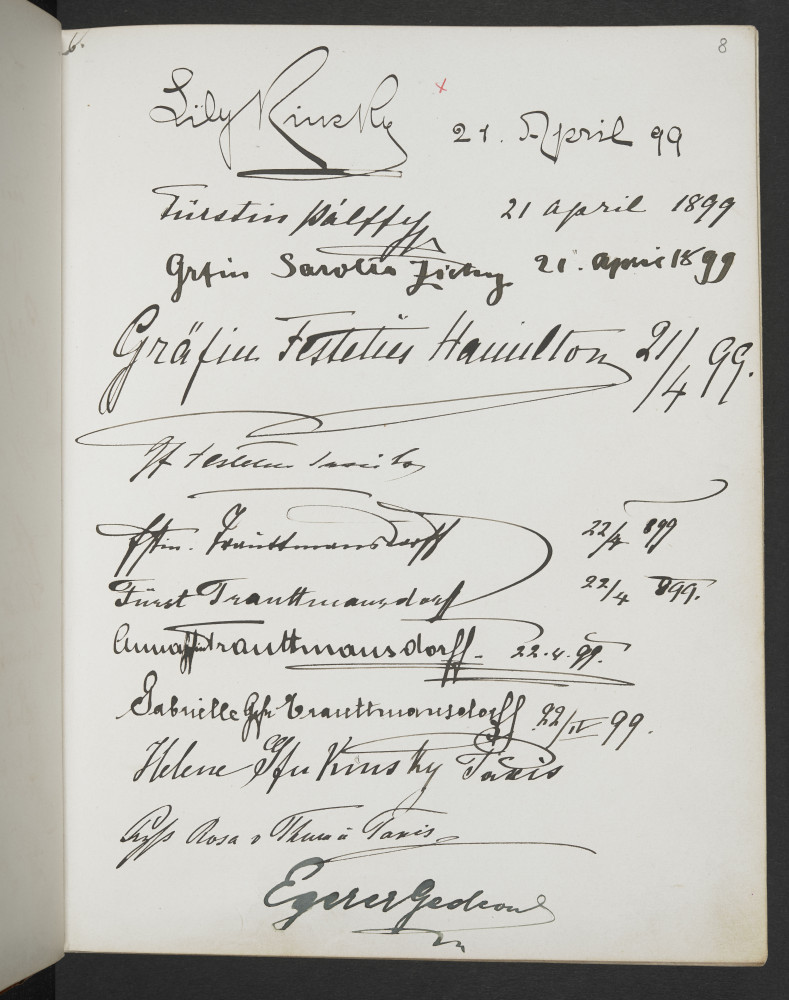 8
Lily Kinsky 21. April 99
Fürstin Pálffy 21 april 1899
Grfin Sarolta Zichy 21. april 1899
Gräfin Festetics Hamilton 21/4 99.
Gf Festetics
Fstin. Trauttmansdorff 22/4 899
Fürst Trauttmansdorff 22/4 899.
Anna Trauttmansdorff. 22.4.99.
Gabrielle Gfin Trauttmansdorff 22/IV 99.
Helene Gfn Kinsky Taxis
Rosa v Thurn u Taxis
Egerer Gedeon